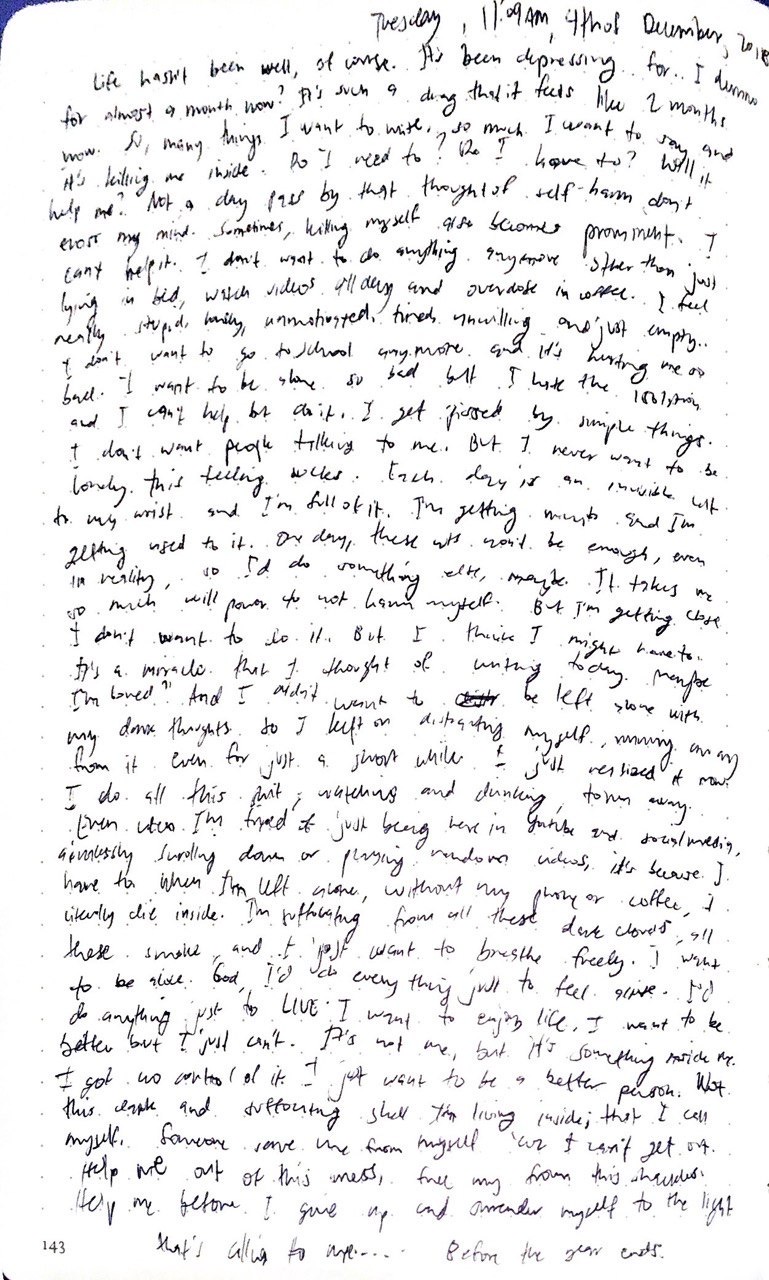 Tuesday, 11:09AM, 4th of December, 2018
Life hasn't been well, of course. It's been depressing for.. I dunno
for almost a month now? It's such a drag that it feels like 2 months
now. So, many things I want to write, so much I want to say and
it's killing me inside. Do I need to? Do I have to? Will it
help me? Not a day pass by that thought of self-harm don't
cross my mind. Sometimes, killing myself also becomes prominent. I
can't help it. I don't want to do anything anymore other than just
lying in bed, watch videos all day and overdose in coffee. I feel
really stupid, lousy, unmotivated, tired, unwilling and just empty..
I don't want to go to school anymore and it's hurting me so
bad. I want to be alone so bad but I hate the isolation
and I can't help but do it. I get pissed by simple things.
I don't want people talking to me. But I never want to be
lonely. This feeling sucks. Each day is an invisible cut
to my wrist and I'm full of it. I'm getting numb and I'm
getting used to it. One day, these cuts won't be enough, even
in reality, so I'd do something else, maybe. It takes me
so much will power to not harm myself. But I'm getting close
I don't want to do it. But I think I might have to.
It's a miracle that I thought of writing today. Maybe
I'm loved? And I didn't want to be left alone with
my dark thoughts so I kept on distracting myself, running away
from it even for just a short while. I just realized it now.
I do all this shit, watching and drinking, to run away.
Even when I'm tired of just being here in youtube and social media,
aimlessly scrolling down or playing random videos, it's because I
have to. When I'm left alone, without my phone or coffee, I
literally die inside. I'm suffocating from all these dark clouds, all
these smoke, and I just want to breathe freely. I want
to be alive. God, I'd do everything just to feel alive. I'd
do anything just to LIVE. I want to enjoy life. I want to be
better but I just can't. It's not me, but it's something inside me.
I got no control of it. I just want to be a better person. Not
this dark and suffocating shell I'm living inside; that I call
myself. Someone save me from myself 'cuz I can't get out.
Help me out of this mess, free my from this shackles.
Help me before I give up and surrender myself to the light
that's calling to me.... Before the year ends.
143